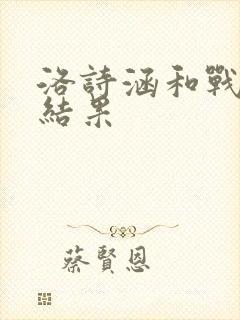 洛詩涵和戰
結果
蔡賢恩